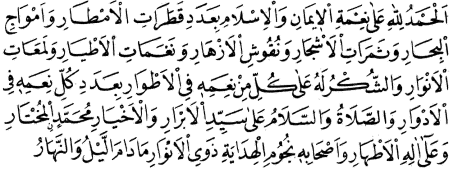 اَلْحَمْدُ لِلّٰهِ عَلٰى نِعْمَةِ الْاِيمَانِ وَالْاِسْلَامِ بِعَدَدِ قَطَرَاتِ الْاَمْطَارِ وَاَمْوَاجِ
الْبِحَارِ وَثَمَرَاتِ الْاَشْجَارِ وَنُقُوشِ الْاَزْهَارِ وَنَغَمَاتِ الْاَطْيَارِ وَلَمَعَاتِ
الْاَنْوَارِ وَالشُّكْرُ لَهُ عَلٰى كُلٍّ مِنْ نِعَمِهِ فِى الْاَطْوَارِ بِعَدَدِ كُلِّ نِعَمِهِ فِى
الْاَدْوَارِ وَالصَّلَاةُ وَالسَّلَامُ عَلٰى سَيِّدِ الْاَبْرَارِ وَالْاَخْيَارِ مُحَمَّدٍ الْمُخْتَارِ
وَعَلٰى اٰلِهِ الْاَطْهَارِ وَاَصْحَابِهِ نُجُومِ الْهِدَايَةِ ذَوِى الْاَنْوَارِ مَادَامَ الَّيْلُ وَالنَّهَارُ